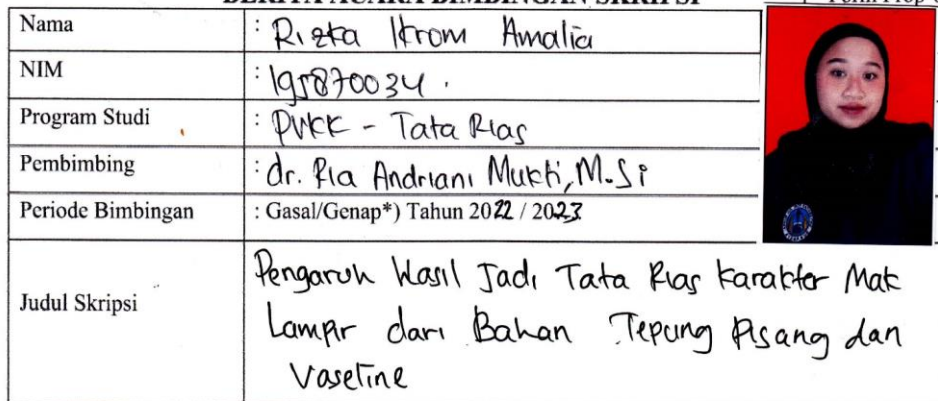 BERITA ACARA BIMBINGAN SKRIPSI
Nama : Rizka Ikrom Amalia
NIM : 195870034.
Program Studi : PVKK - Tata Rias
Pembimbing : dr. Ria Andriani Mukti, M.Si
Periode Bimbingan : Gasal/Genap*) Tahun 2022 / 2023
Judul Skripsi
Pengaruh Hasil Jadi Tata Rias Karakter Mak
Lampir dari Bahan Tepung Pisang dan
Vaseline